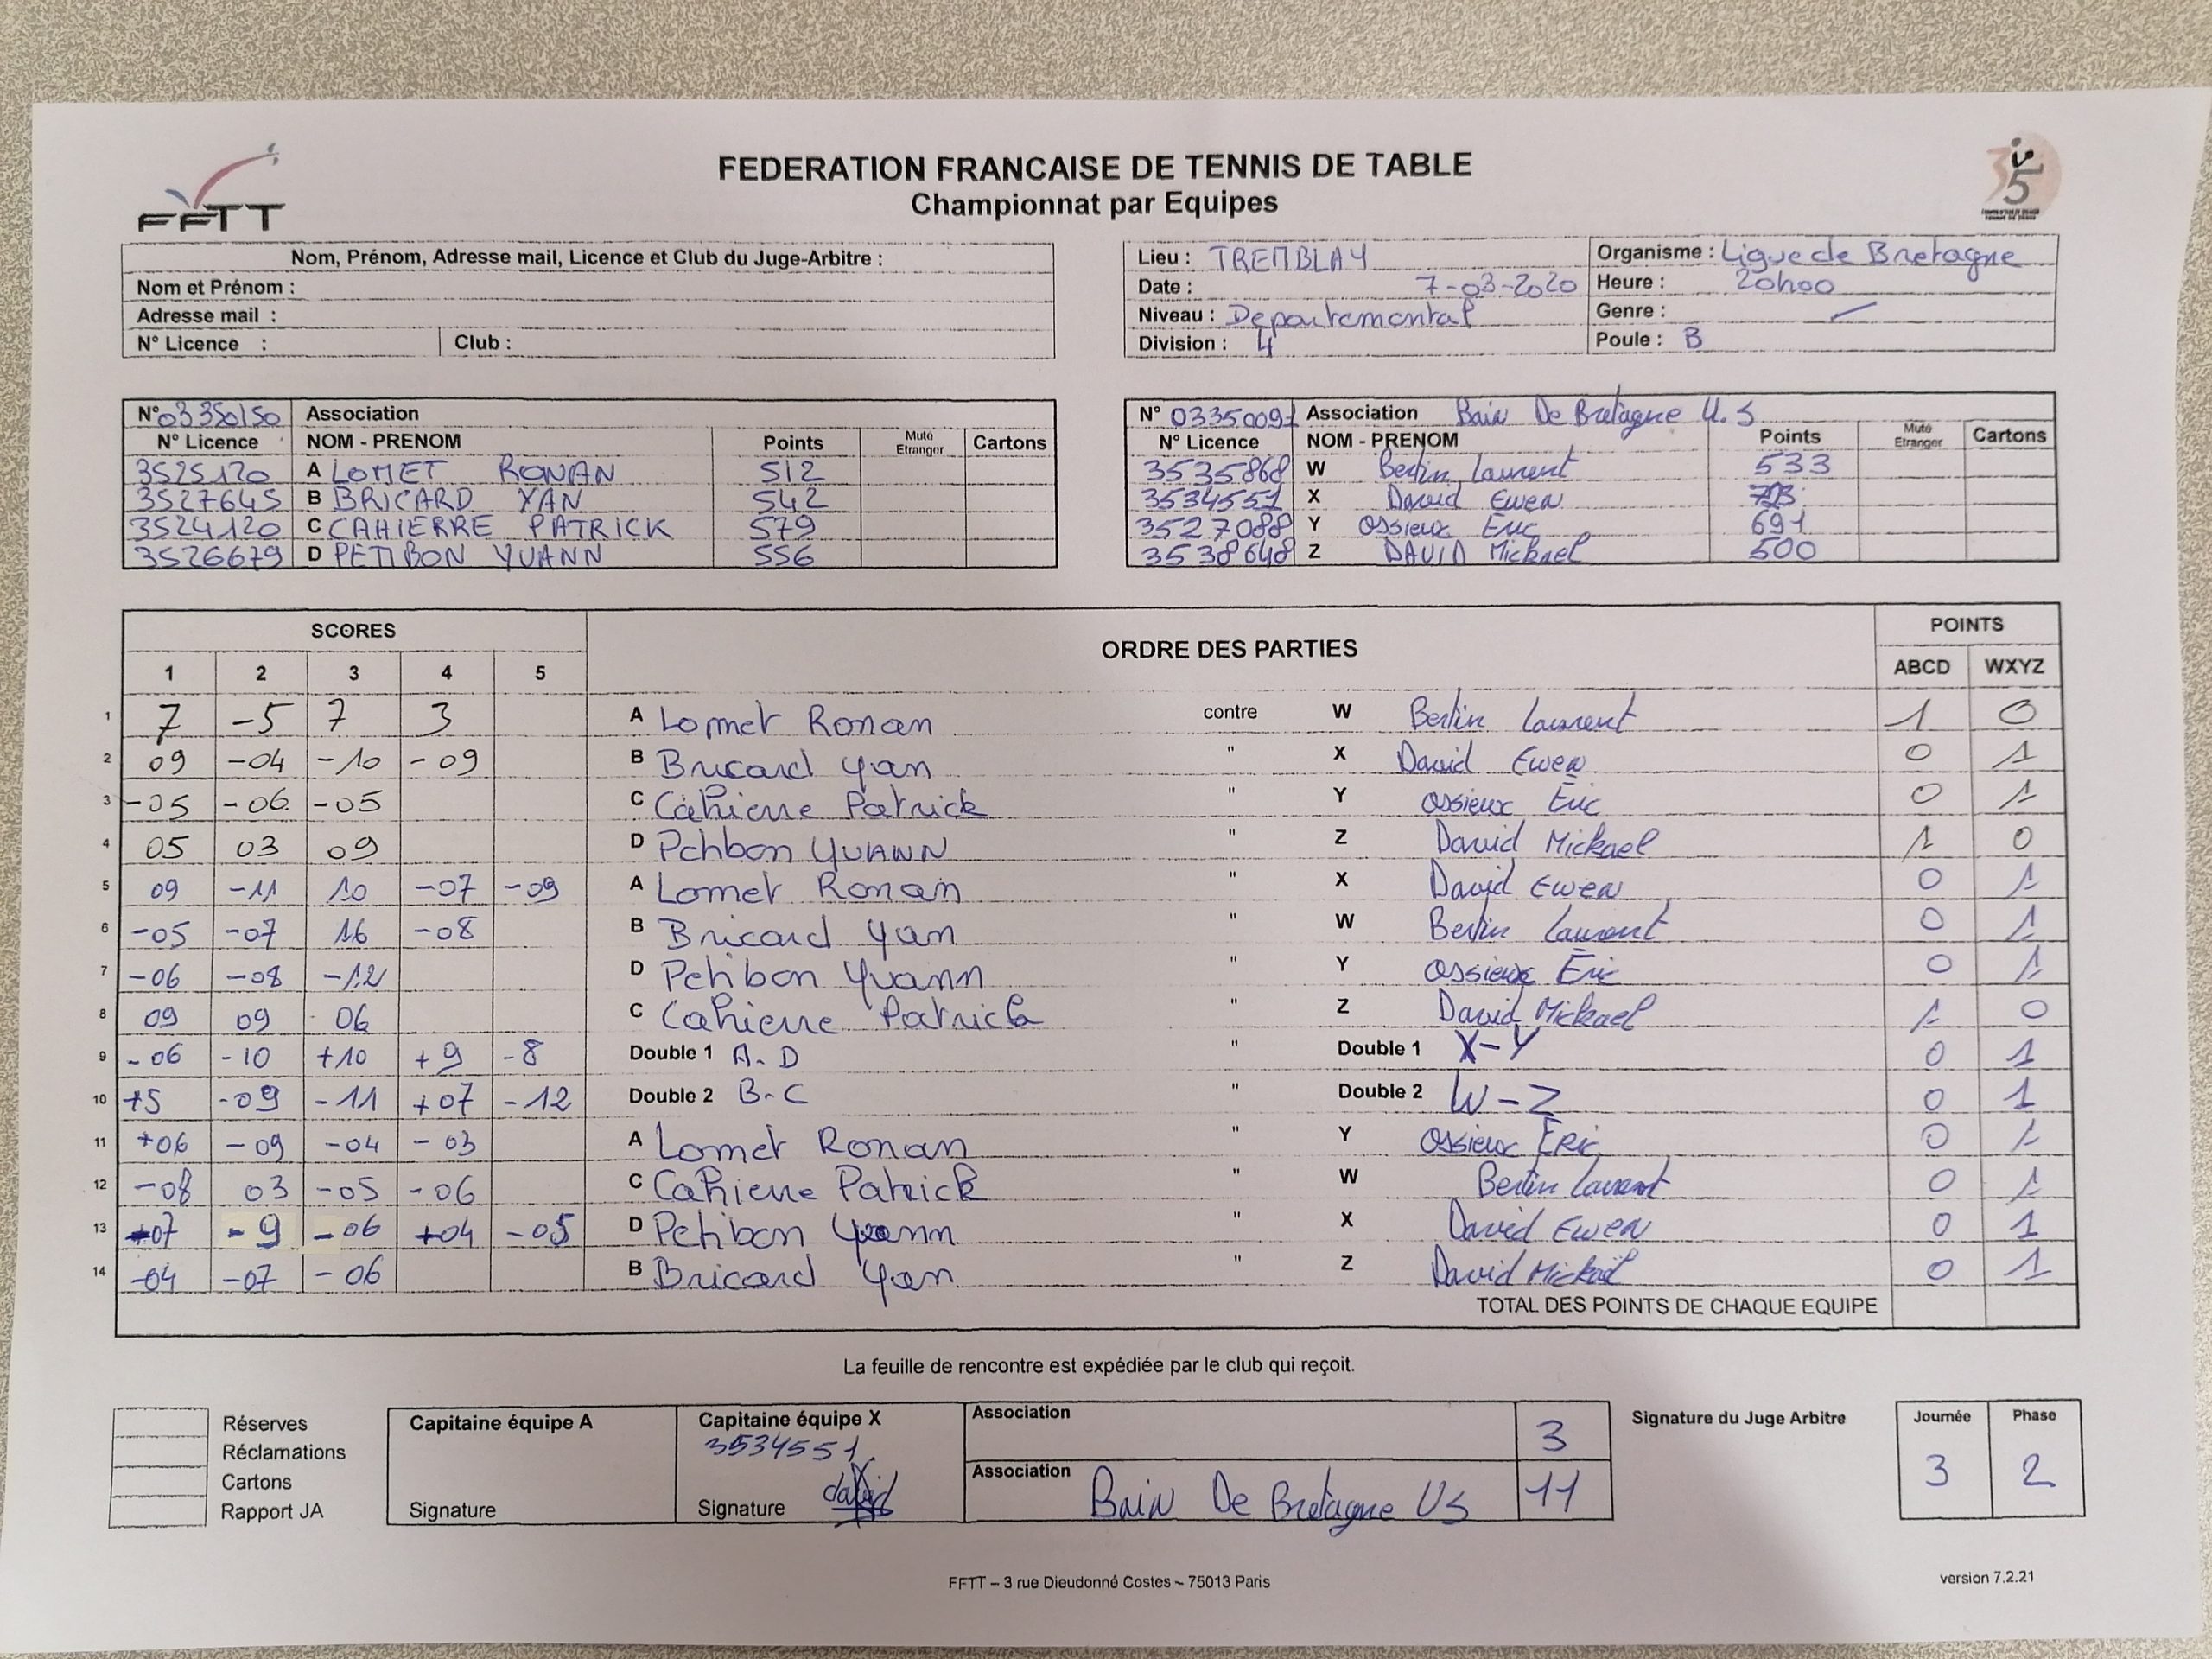 FEDERATION FRANCAISE DE TENNIS DE TABLE
Championnat par Equipes
FFTT
Nom, Prénom, Adresse mail, Licence et Club du Juge-Arbitre :
Nom et Prénom :
Adresse mail :
N° Licence : Club :
Lieu : TREMBLAY Organisme : Ligue de Bretagne
Date : 7-03-2020 Heure : 20h00
Niveau : Departemental Genre :
Division : 4 Poule : B
N° 03350150 Association
N° Licence NOM - PRENOM Points Muté Etranger Cartons
3525120 A LOMET RONAN 512
3527645 B BRICARD YAN 542
3524120 C CAHIERRE PATRICK 579
3526679 D PETIBON YUANN 556
N° 03350091 Association Bain De Bretagne U.S
N° Licence NOM - PRENOM Points Muté Etranger Cartons
3535868 W Bertin Laurent 533
3534551 X David Ewen
3527088 Y Ossieux Eric 691
3538648 Z DAVID Mickael 500
SCORES ORDRE DES PARTIES POINTS
1 2 3 4 5 ABCD WXYZ
1 7 -5 7 3 A Lomet Ronan contre W Bertin Laurent 1 0
2 09 -04 -10 -09 B Bricard Yan " X David Ewen 0 1
3 -05 -06 -05 C Cahierre Patrick " Y Ossieux Eric 0 1
4 05 03 09 D Petibon YUANN " Z David Mickael 1 0
5 09 -11 10 -07 -09 A Lomet Ronan " X David Ewen 0 1
6 -05 -07 16 -08 B Bricard Yan " W Bertin Laurent 0 1
7 -06 -08 -12 D Petibon Yuann " Y Ossieux Eric 0 1
8 09 09 06 C Cahierre Patrick " Z David Mickael 1 0
9 -06 -10 +10 +9 -8 Double 1 A-D " Double 1 X-Y 0 1
10 +5 -09 -11 +07 -12 Double 2 B-C " Double 2 W-Z 0 1
11 +06 -09 -04 -03 A Lomet Ronan " Y Ossieux Eric 0 1
12 -08 03 -05 -06 C Cahierre Patrick " W Bertin Laurent 0 1
13 +07 -9 -06 +04 -05 D Petibon Yuann " X David Ewen 0 1
14 -04 -07 -06 B Bricard Yan " Z David Mickaël 0 1
TOTAL DES POINTS DE CHAQUE EQUIPE
La feuille de rencontre est expédiée par le club qui reçoit.
Réserves
Réclamations
Cartons
Rapport JA
Capitaine équipe A
Signature
Capitaine équipe X
3534551
Signature david
Association 3
Association Bain De Bretagne US 11
Signature du Juge Arbitre
Journée Phase
3 2
FFTT – 3 rue Dieudonné Costes – 75013 Paris
version 7.2.21